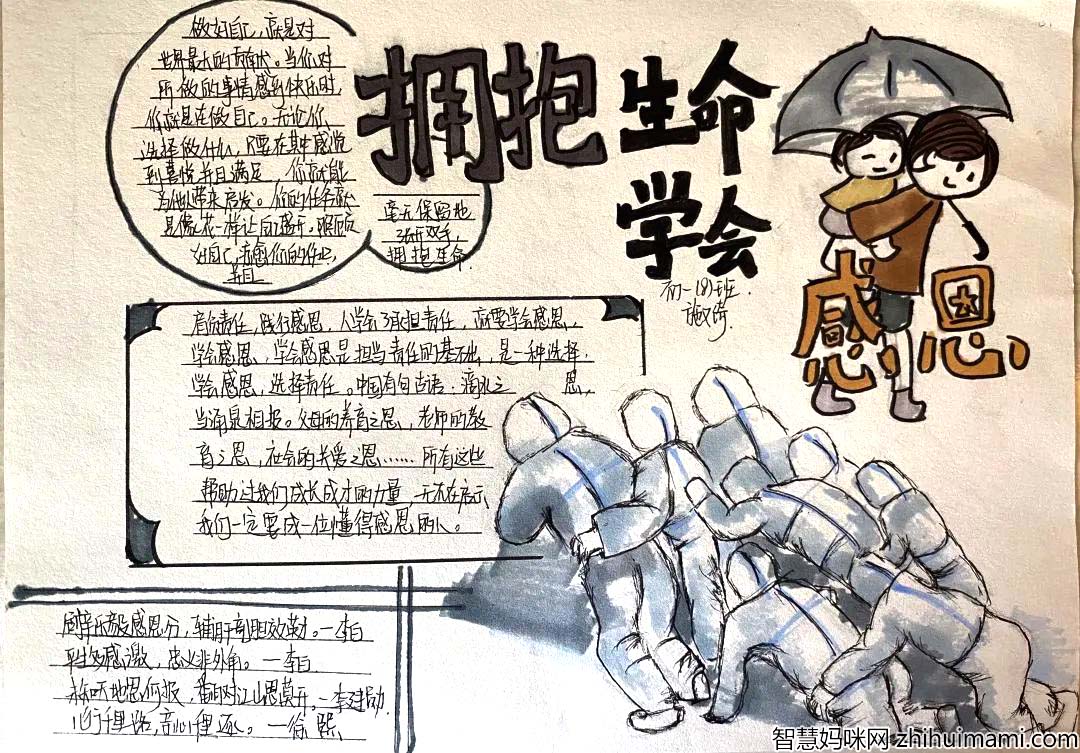 拥抱生命
学会
感恩
初一(8)班
做好自己，就是对
世界最大的贡献。当你对
所做的事情感到快乐时，
你就是在做自己。无论你
选择做什么，只要在其中感觉
到喜悦并且满足，你就能
为他人带来启发。你的任务就
是像花一样让自己盛开。照顾
好自己，治愈你们的伤心，
并且
毫无保留地
张开双手，
拥抱生命。
肩负责任，践行感恩，人学会了承担责任，就要学会感恩，
学会感恩，学会感恩是担当责任的基础，是一种选择，
学会感恩，选择责任。中国有句古语：滴水之 恩，
当涌泉相报。父母的养育之恩，老师的教
育之恩，社会的关爱之恩……所有这些
帮助过我们成长成才的力量，无不在启示
我们一定要成一位懂得感恩的人。
剧辛乐毅感恩分，输肝剖胆效英才。—李白
平生多感激，忠义非外奖。—李白
—李建勋
心行千里路，
智慧妈咪网 zhihuimami.com